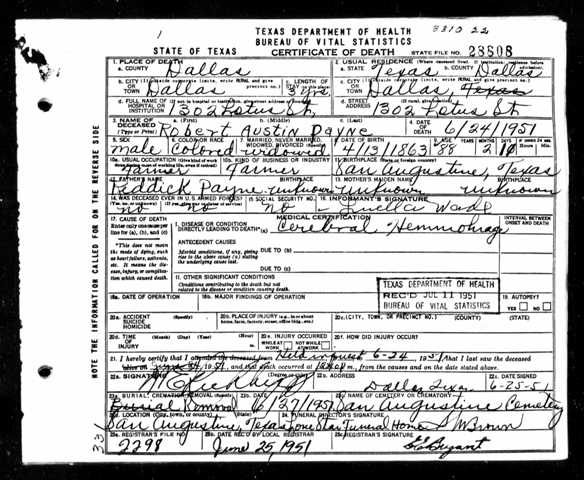 3310 22
1
TEXAS DEPARTMENT OF HEALTH
BUREAU OF VITAL STATISTICS
STATE OF TEXAS CERTIFICATE OF DEATH STATE FILE NO. 23808
1. PLACE OF DEATH
a. COUNTY Dallas
2. USUAL RESIDENCE (Where deceased lived. If institution, residence before admission)
a. STATE Texas b. COUNTY Dallas
b. CITY OR TOWN Dallas
c. LENGTH OF
c. CITY OR TOWN Dallas, Texas
d. FULL NAME OF HOSPITAL OR INSTITUTION 1302 Lotus St.
d. STREET ADDRESS 1302 Lotus St.
3. NAME OF DECEASED (Type or Print) a. (First) Robert b. (Middle) Austin c. (Last) Payne
4. DATE OF DEATH 6/24/1951
5. SEX male 6. COLOR OR RACE Colored 7. MARRIED, NEVER MARRIED, WIDOWED, DIVORCED widowed
8. DATE OF BIRTH 4/13/1863 88 2
10a. USUAL OCCUPATION Farmer
10b. KIND OF BUSINESS OR INDUSTRY Farmer
11. BIRTHPLACE (State or foreign country) San Augustine, Texas
12. FATHER'S NAME Reddick Payne BIRTHPLACE unknown
13. MOTHER'S MAIDEN NAME unknown BIRTHPLACE unknown
14. WAS DECEASED EVER IN U.S. ARMED FORCES? no no
15. SOCIAL SECURITY NO. no
16. INFORMANT'S SIGNATURE Luella Wade
17. CAUSE OF DEATH
Enter only one cause per line for (a), (b), and (c)
MEDICAL CERTIFICATION
INTERVAL BETWEEN ONSET AND DEATH
I. DISEASE OR CONDITION DIRECTLY LEADING TO DEATH* (a) Cerebral Hemmorhage
*This does not mean the mode of dying, such as heart failure, asthenia, etc. It means the disease, injury, or complication which caused death.
ANTECEDENT CAUSES
Morbid conditions, if any, giving rise to the above cause (a) stating the underlying cause last.
DUE TO (b)
DUE TO (c)
II. OTHER SIGNIFICANT CONDITIONS
Conditions contributing to the death but not related to the disease or condition causing death.
TEXAS DEPARTMENT OF HEALTH
REC'D JUL 11 1951
BUREAU OF VITAL STATISTICS
18a. DATE OF OPERATION
18b. MAJOR FINDINGS OF OPERATION
19. AUTOPSY? YES NO
20a. ACCIDENT SUICIDE HOMICIDE
20b. PLACE OF INJURY
20c. (CITY, TOWN, OR PRECINCT NO.) (COUNTY) (STATE)
20d. TIME OF INJURY (Month) (Day) (Year) (Hour)
20e. INJURY OCCURRED WHILE AT WORK NOT WHILE AT WORK
20f. HOW DID INJURY OCCUR?
21. I hereby certify that I attended the deceased from Held inquest 6-24, 1951 that I last saw the deceased
and that death occurred at from the causes and on the date stated above.
22a. SIGNATURE
22b. ADDRESS Dallas Texas
22c. DATE SIGNED 6-25-51
23a. BURIAL, CREMATION, REMOVAL Burial Removal
23b. DATE 6/27/1951
23c. NAME OF CEMETERY OR CREMATORY San Augustine Cemetery
23d. LOCATION San Augustine, Texas
24. FUNERAL DIRECTOR'S SIGNATURE Lone Star Funeral Home S W Brown
25a. REGISTRAR'S FILE NO. 2298
25b. DATE REC'D BY LOCAL REGISTRAR June 25, 1951
25c. REGISTRAR'S SIGNATURE Bryant
NOTE THE INFORMATION CALLED FOR ON THE REVERSE SIDE
33